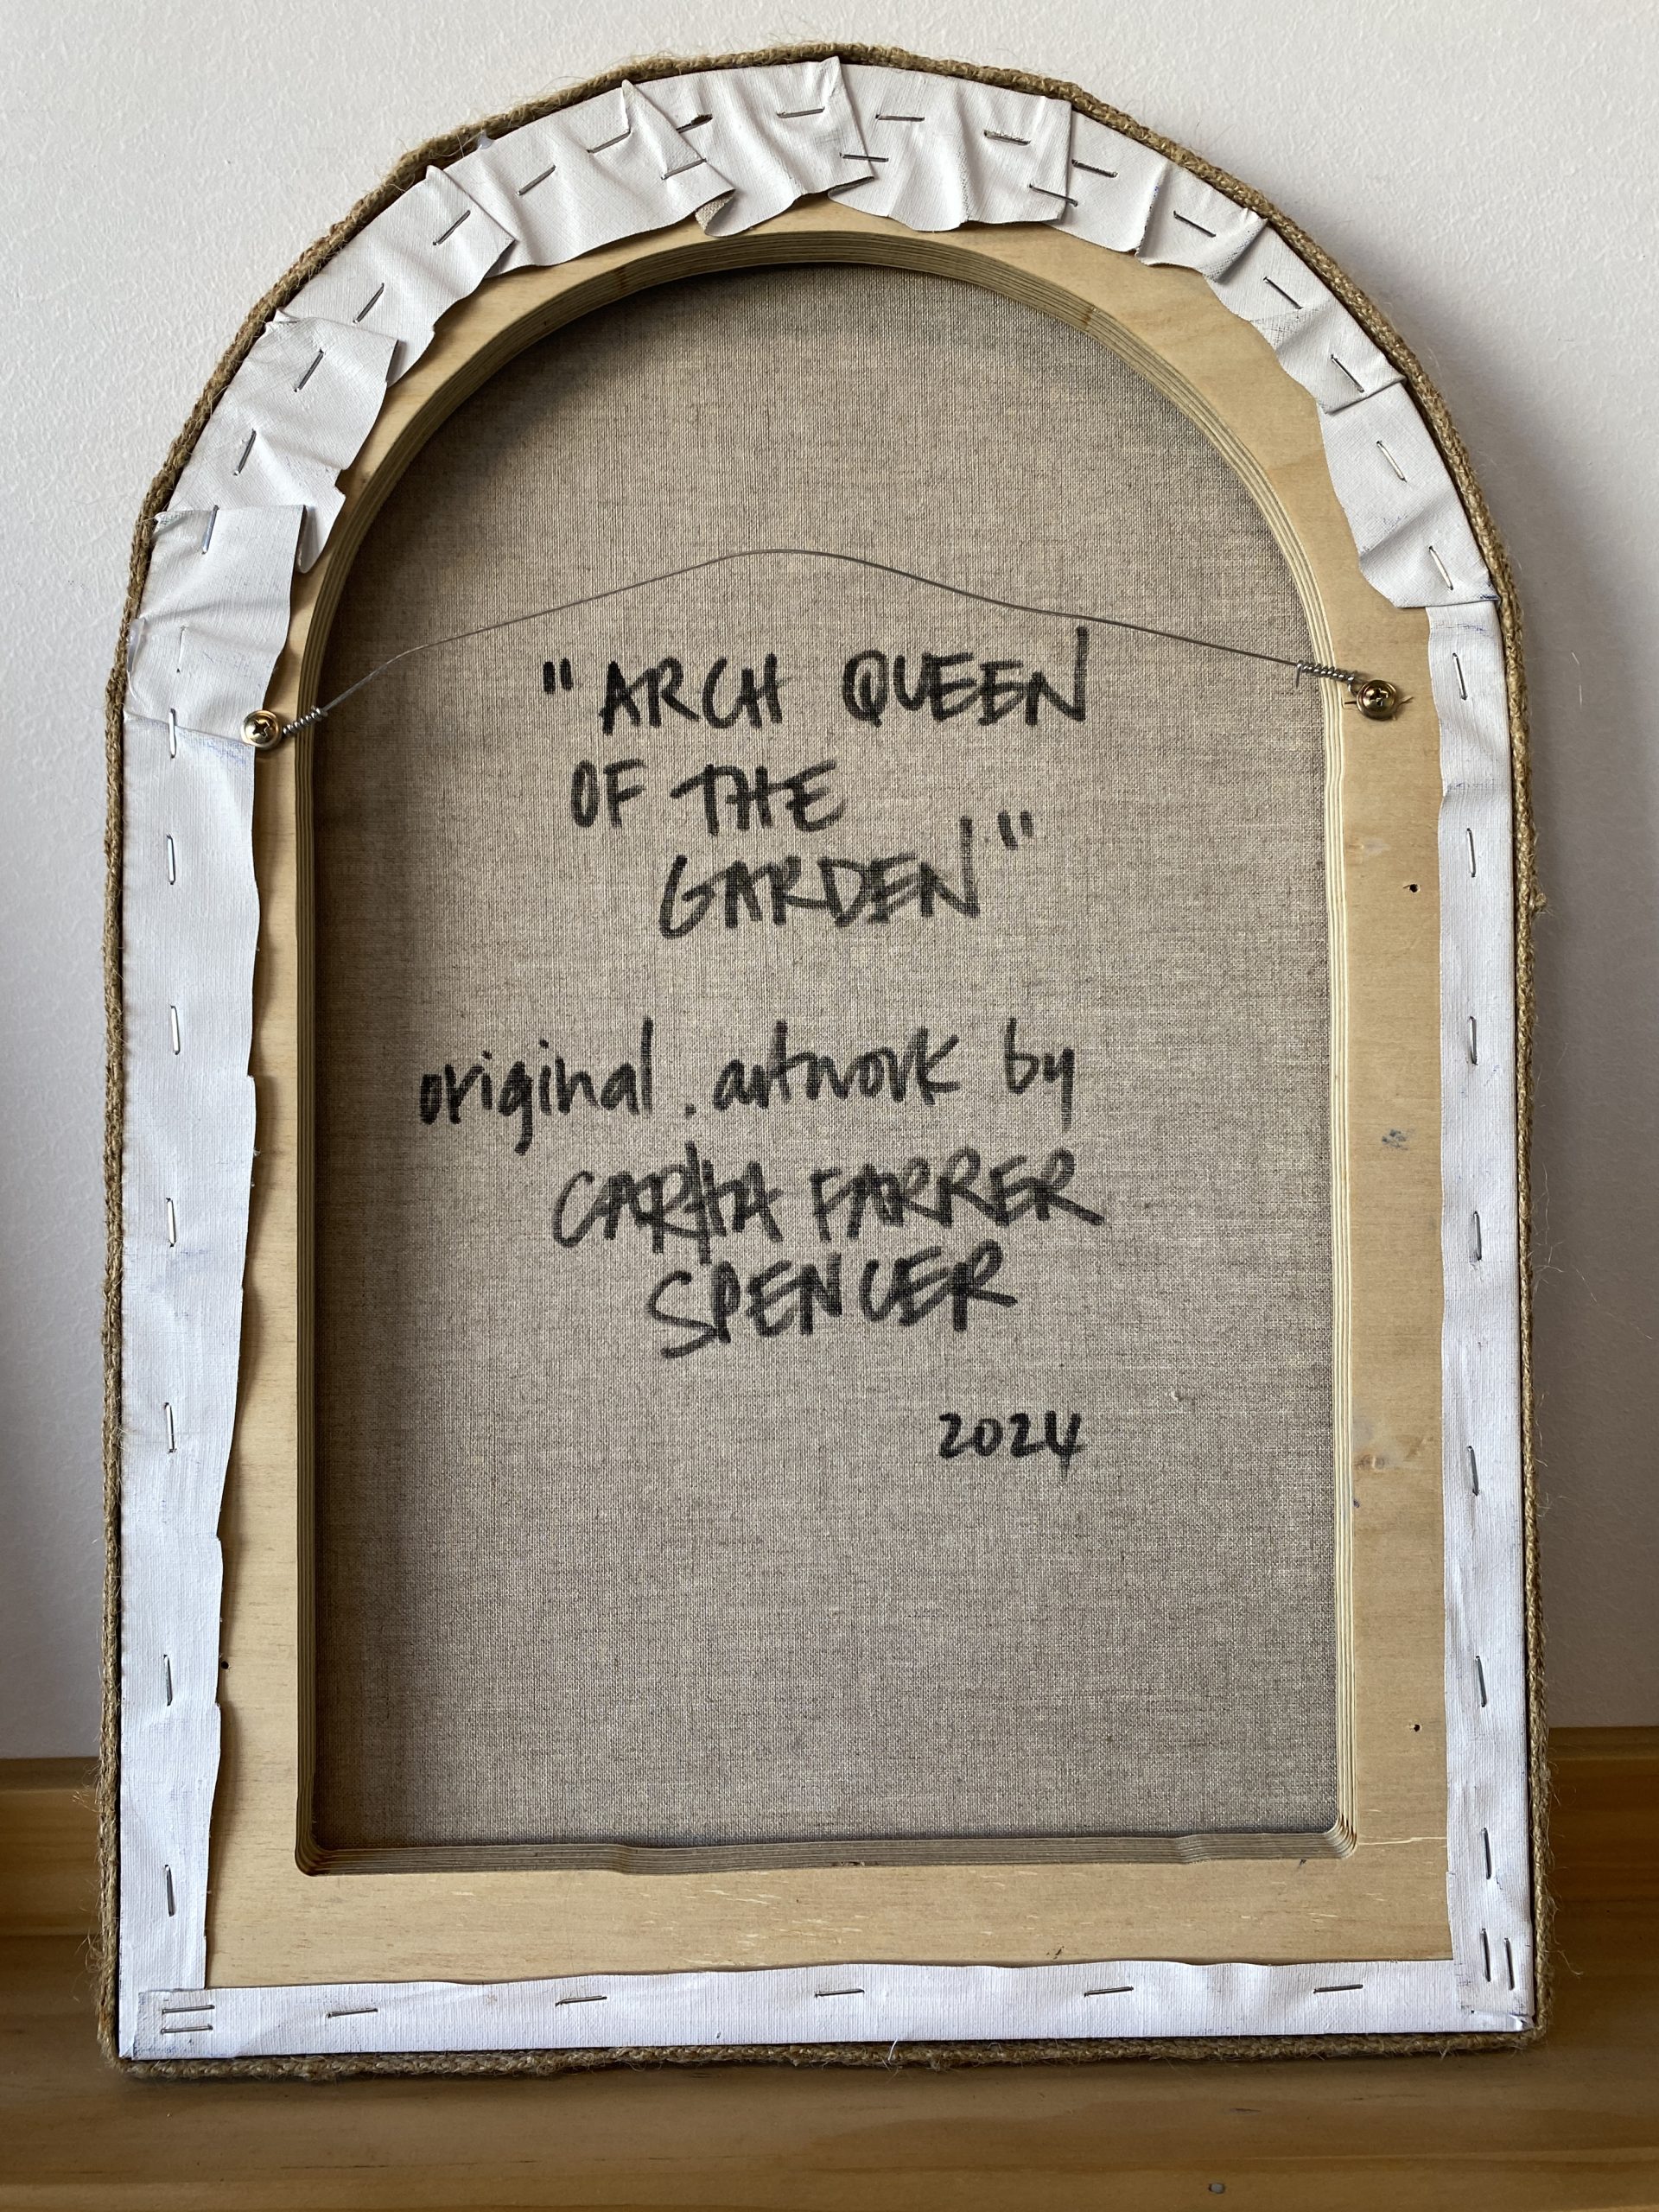 "ARCH QUEEN
OF THE
GARDEN"
original. artwork by
CARITA FARRER
SPENCER
2024